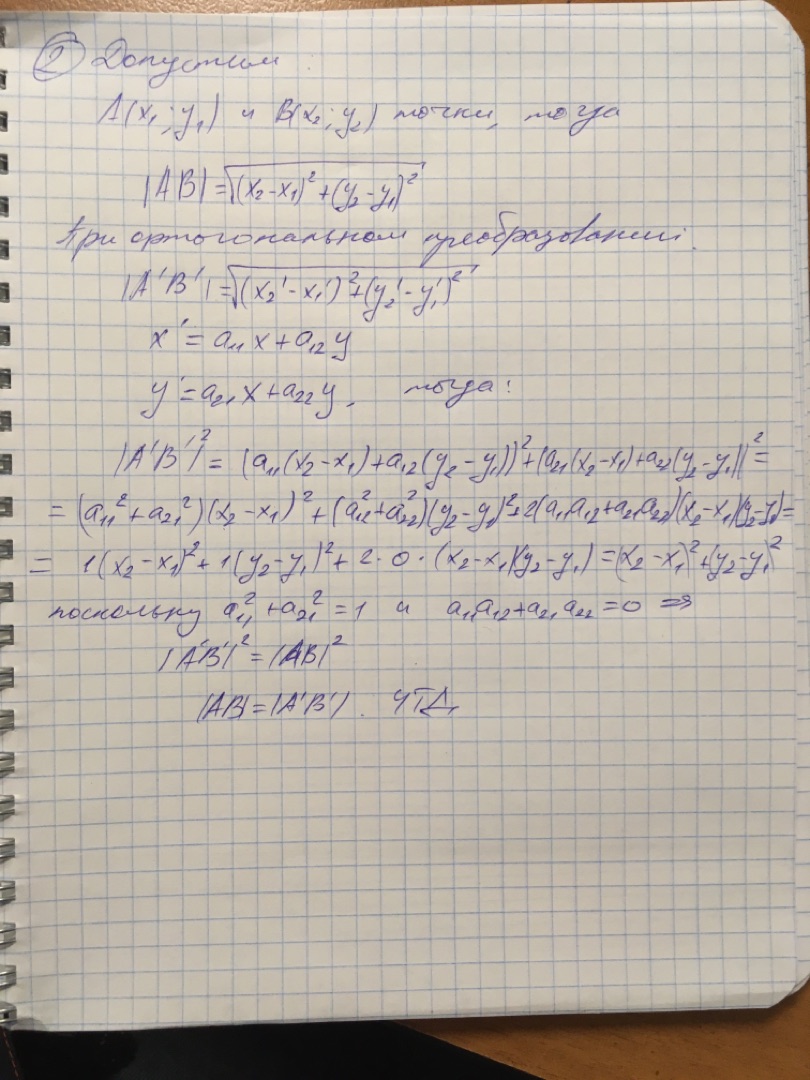 ② Допустим:
A(x₁; y₁) и B(x₂; y₂) точки, тогда
|AB| = √((x₂-x₁)² + (y₂-y₁)²)
При ортогональном преобразовании
|A'B'| = √((x₂'-x₁')² + (y₂'-y₁')²)
x' = a₁₁x + a₁₂y
y' = a₂₁x + a₂₂y, тогда:
|A'B'|² = (a₁₁(x₂-x₁) + a₁₂(y₂-y₁))² + (a₂₁(x₂-x₁) + a₂₂(y₂-y₁))² =
= (a₁₁² + a₂₁²)(x₂-x₁)² + (a₁₂² + a₂₂²)(y₂-y₁)² + 2(a₁₁a₁₂ + a₂₁a₂₂)(x₂-x₁)(y₂-y₁) =
= 1(x₂-x₁)² + 1(y₂-y₁)² + 2·0·(x₂-x₁)(y₂-y₁) = (x₂-x₁)² + (y₂-y₁)²
поскольку a₁₁² + a₂₁² = 1 и a₁₁a₁₂ + a₂₁a₂₂ = 0 ⇒
|A'B'|² = |AB|²
|AB| = |A'B'|. ЧТД.